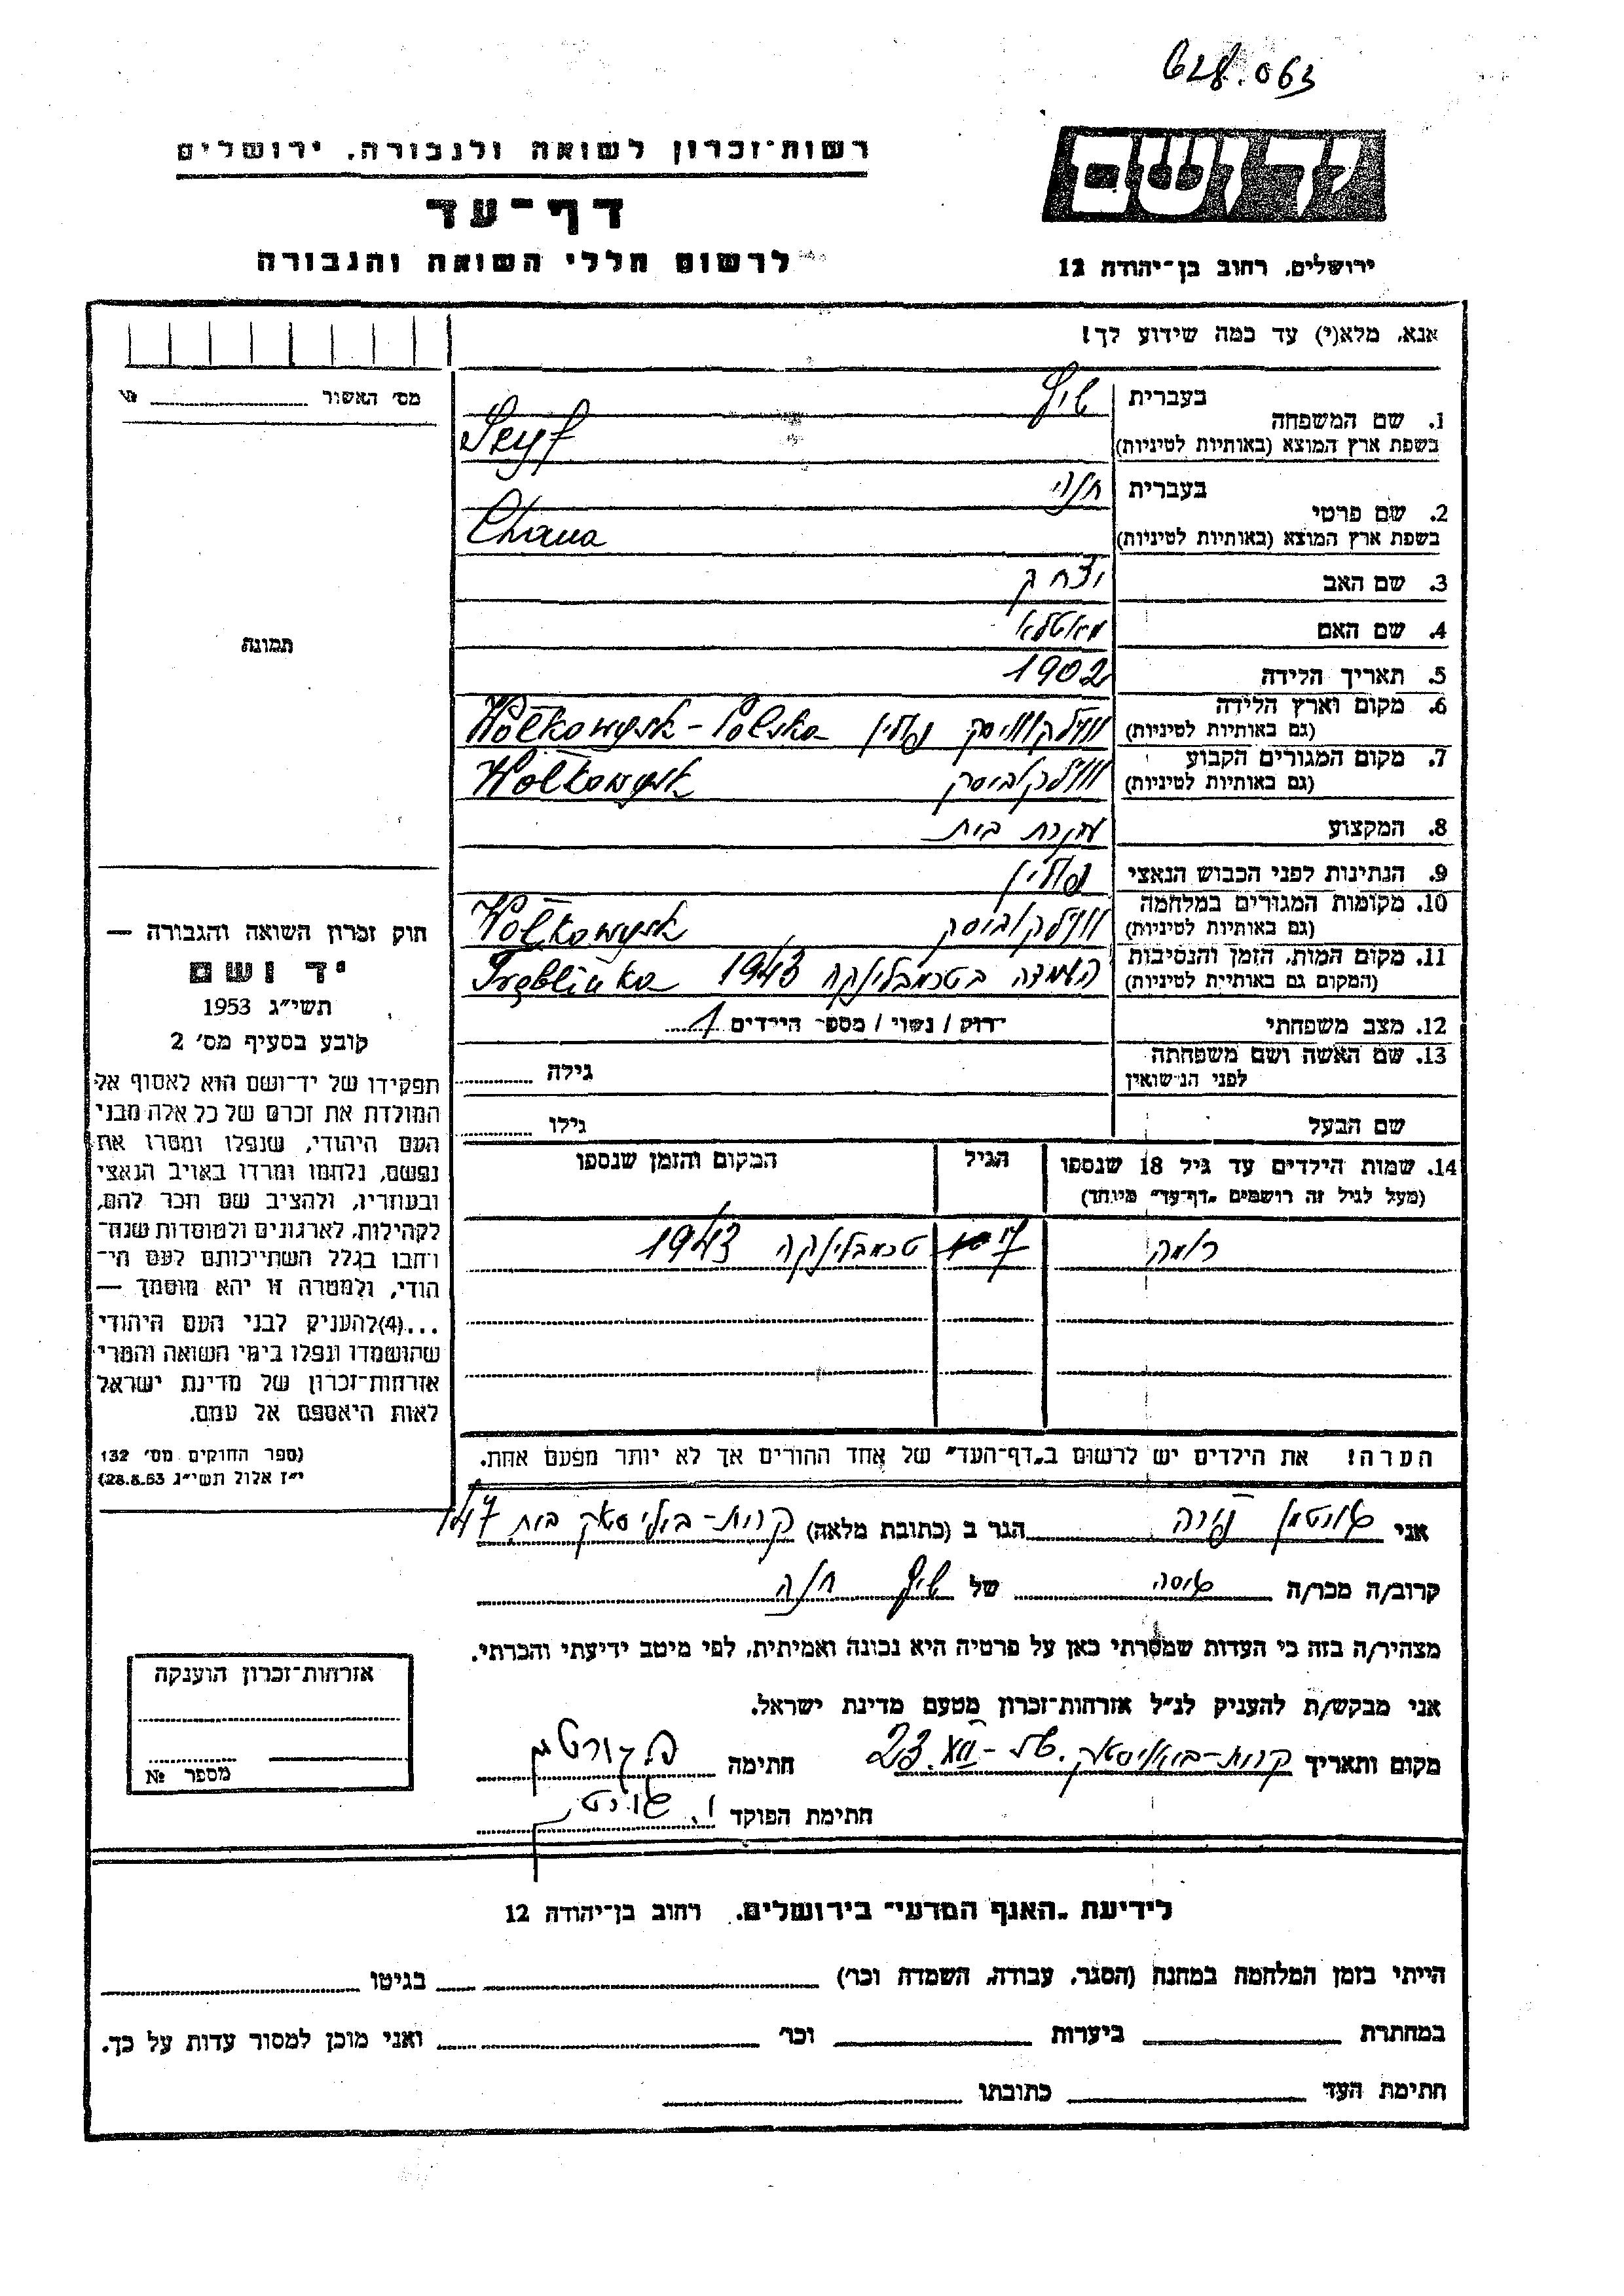 628.063
יד ושם
רשות־זכרון לשואה ולגבורה, ירושלים
דף־עד
לרשום חללי השואה והגבורה
ירושלים, רחוב בן־יהודה 12
אנא, מלא(י) עד כמה שידוע לך!
מס׳ האשור № 
1. שם המשפחה
בעברית
בשפת ארץ המוצא (באותיות לטיניות)
Seyf
2. שם פרטי
בעברית חנה
בשפת ארץ המוצא (באותיות לטיניות) Chana
3. שם האב יצחק
4. שם האם
5. תאריך הלידה 1902
6. מקום וארץ הלידה
(גם באותיות לטיניות) פולין Wołkowysk - Polska
7. מקום המגורים הקבוע
(גם באותיות לטיניות) Wołkowysk
8. המקצוע עקרת בית
9. הנתינות לפני הכבוש הנאצי פולין
10. מקומות המגורים במלחמה
(גם באותיות לטיניות) Wołkowysk
11. מקום המות, הזמן והנסיבות
(המקום גם באותיות לטיניות) 1943 Tręblinka
12. מצב משפחתי רווק / נשוי / מספר הילדים 1
13. שם האשה ושם משפחתה
לפני הנישואין גילה
שם הבעל גילו
14. שמות הילדים עד גיל 18 שנספו הגיל המקום והזמן שנספו
(מעל לגיל זה רושמים „דף־עד״ מיוחד)
17 טרבלינקה 1943
הערה! את הילדים יש לרשום ב„דף־העד״ של אחד ההורים אך לא יותר מפעם אחת.
תמונה
חוק זכרון השואה והגבורה —
יד ושם
תשי״ג 1953
קובע בסעיף מס׳ 2
תפקידו של יד־ושם הוא לאסוף אל
המולדת את זכרם של כל אלה מבני
העם היהודי, שנפלו ומסרו את
נפשם, נלחמו ומרדו באויב הנאצי
ובעוזריו, ולהציב שם וזכר להם,
לקהילות, לארגונים ולמוסדות שנח־
רבו בגלל השתייכותם לעם הי־
הודי, ולמטרה זו יהא מוסמך —
...(4)להעניק לבני העם היהודי
שהושמדו ונפלו בימי השואה והמרי
אזרחות־זכרון של מדינת ישראל
לאות היאספם אל עמם.
(ספר החוקים מס׳ 132
י״ז אלול תשי״ג 28.8.53)
אני הגר ב (כתובת מלאה) בית 147
קרוב/ה מכר/ה של חנה
מצהיר/ה בזה כי העדות שמסרתי כאן על פרטיה היא נכונה ואמיתית, לפי מיטב ידיעתי והכרתי.
אני מבקש/ת להעניק לנ״ל אזרחות־זכרון מטעם מדינת ישראל.
מקום ותאריך 23 חתימה
חתימת הפוקד
אזרחות־זכרון הוענקה
מספר №
לידיעת „האגף המדעי״ בירושלים, רחוב בן־יהודה 12
הייתי בזמן המלחמה במחנה (הסגר, עבודה, השמדה וכו׳) בגיטו
במחתרת ביערות וכו׳ ואני מוכן למסור עדות על כך.
חתימת העד כתובתו